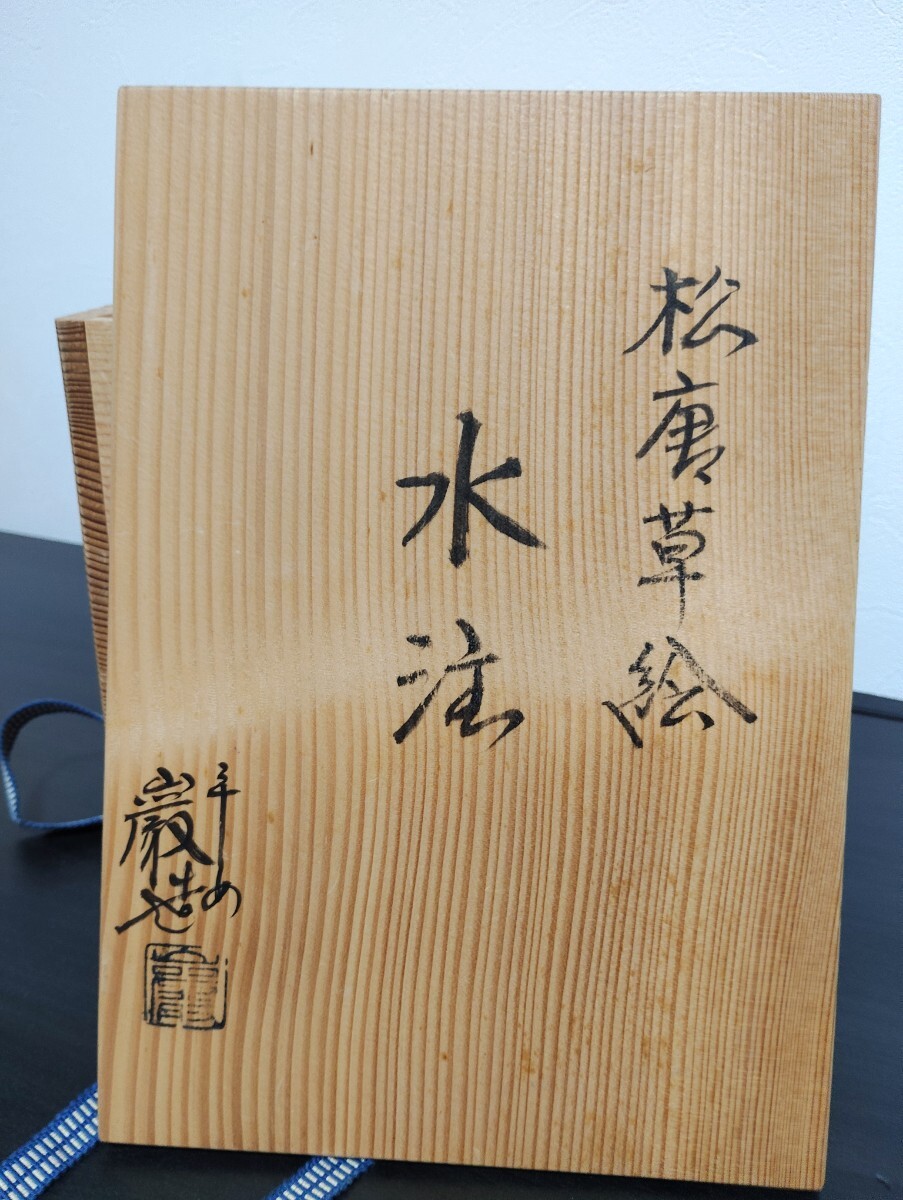 松唐草絵
水注
巌造